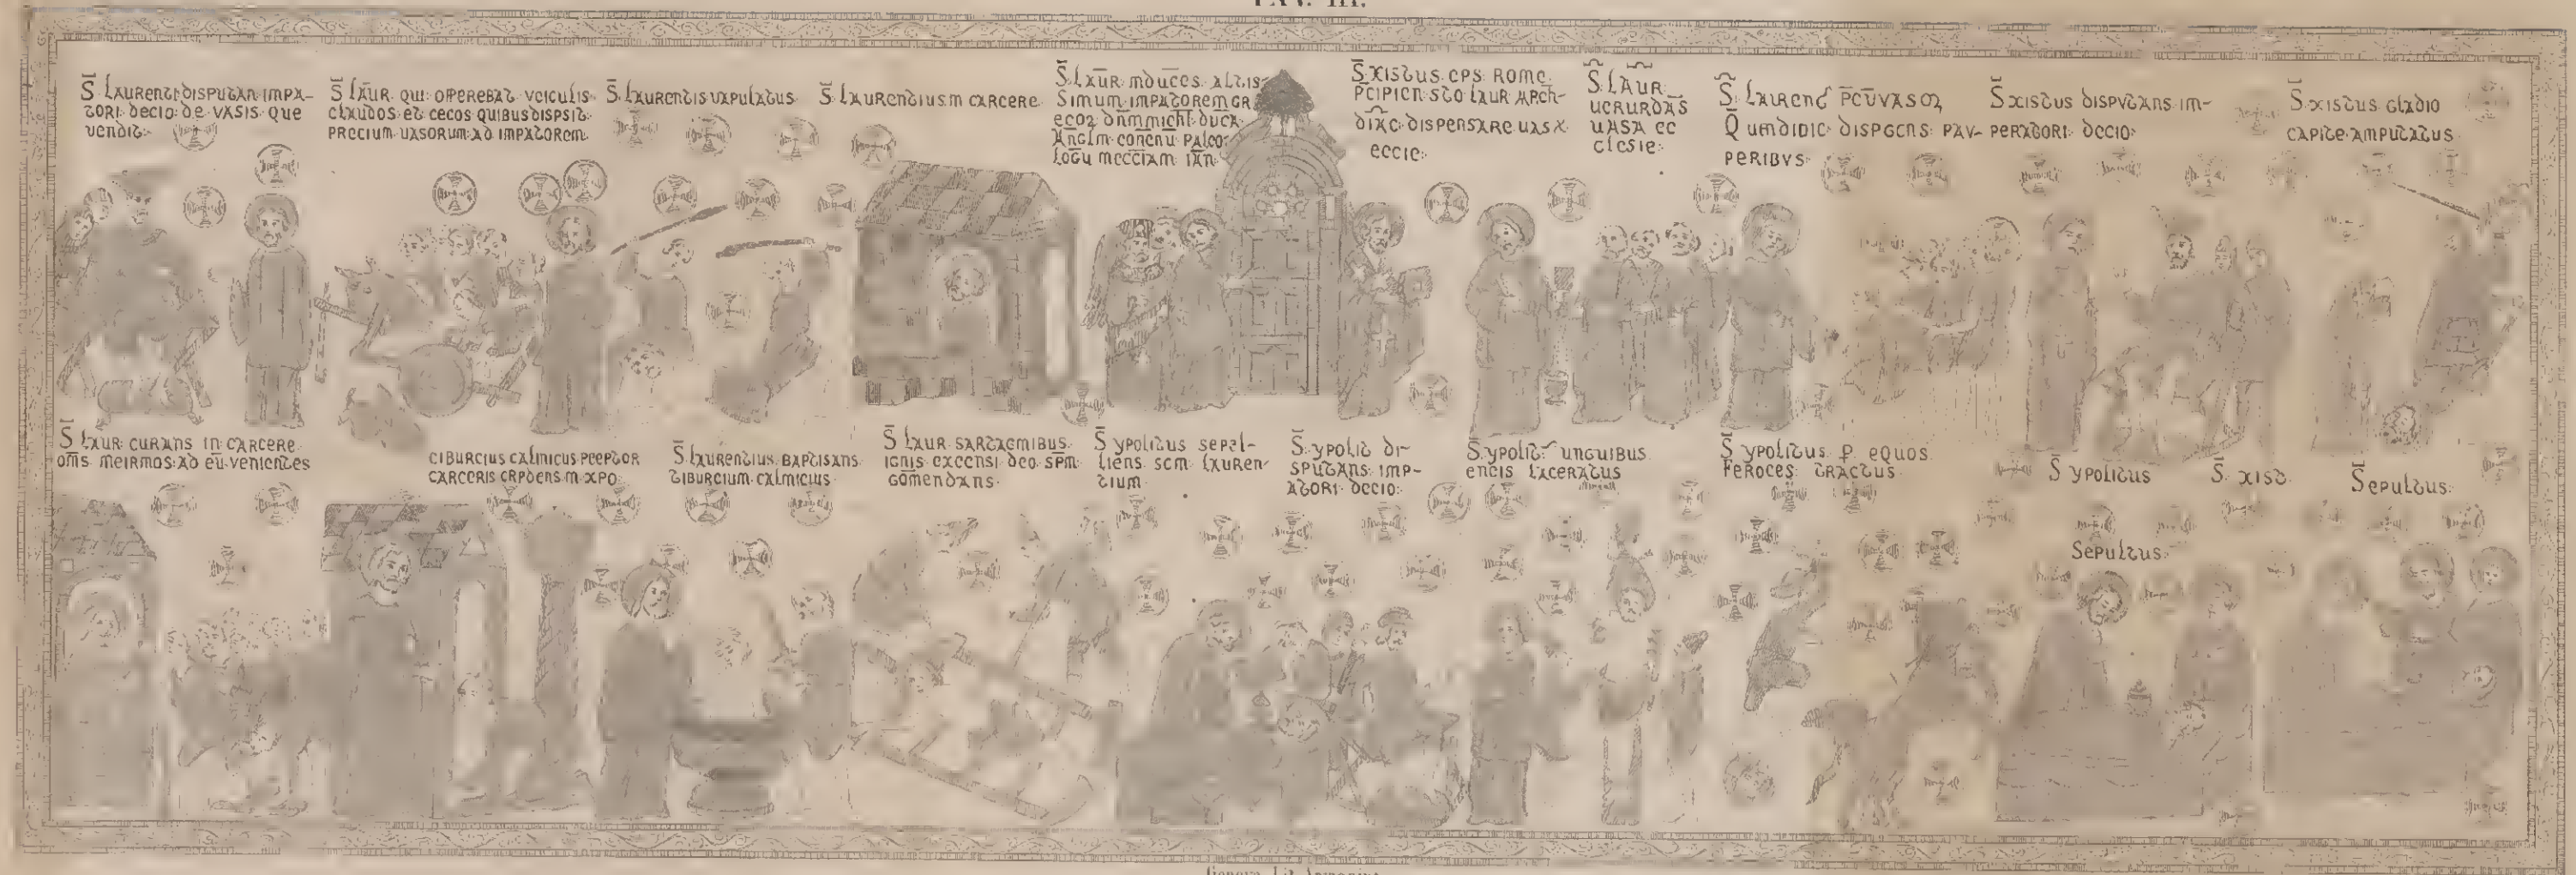 TAV. III.
S LAURENTI DISPUTAN IMPA-
TORI DECIO DE VASIS QUE
VENDIT
S LAUR QUI OPPEREBAT VEICULIS
CLAUDOS ET CECOS QUIBUS DISPSIT
PRECIUM UASORUM AD IMPATOREM
S LAURENTIS VAPULATUS
S LAURENTIUS M CARCERE
S LAUR MDUCES ALTIS
SIMUM IMPATOREM GR
ECOR DNM MICHL DUCA
ANGLM COMENU PALEO
LOGU MECCIAM IAN
S XISTUS EPS ROME
PCIPIEN STO LAUR ARCH-
DIAC DISPENSARE UAS X
ECCIE
S LAUR
UERURDAS
UASA EC
CLESIE
S LAURENT PCUVASOR
Q UMDIDIC DISPGENS PAV-
PERIBVS
S XISTUS DISPVTANS IM-
PERATORI DECIO
S XISTUS GLADIO
CAPITE AMPUTATUS
S LAUR CURANS IN CARCERE
OMS MEIRMOS AD EU VENIENTES
CIBURCIUS CALMICUS PCEPTOR
CARCERIS CRPDENS M XPO
S LAURENTIUS BAPTISANS
TIBURCIUM CALMICIUS
S LAUR SARTAEMIBUS
IGNIS EXCENSI DEO SPM
GOMENDANS
S YPOLITUS SEPEL-
LIENS SCM LAUREN-
TIUM
S YPOLIT DI-
SPUTANS IMP-
ATORI DECIO
S YPOLIT UNGUIBUS
ENEIS LACERATUS
S YPOLITUS P EQUOS
FEROCES TRACTUS
S YPOLITUS
SEPULTUS
S XIST
SEPULTUS
Genova Lit. Armanino